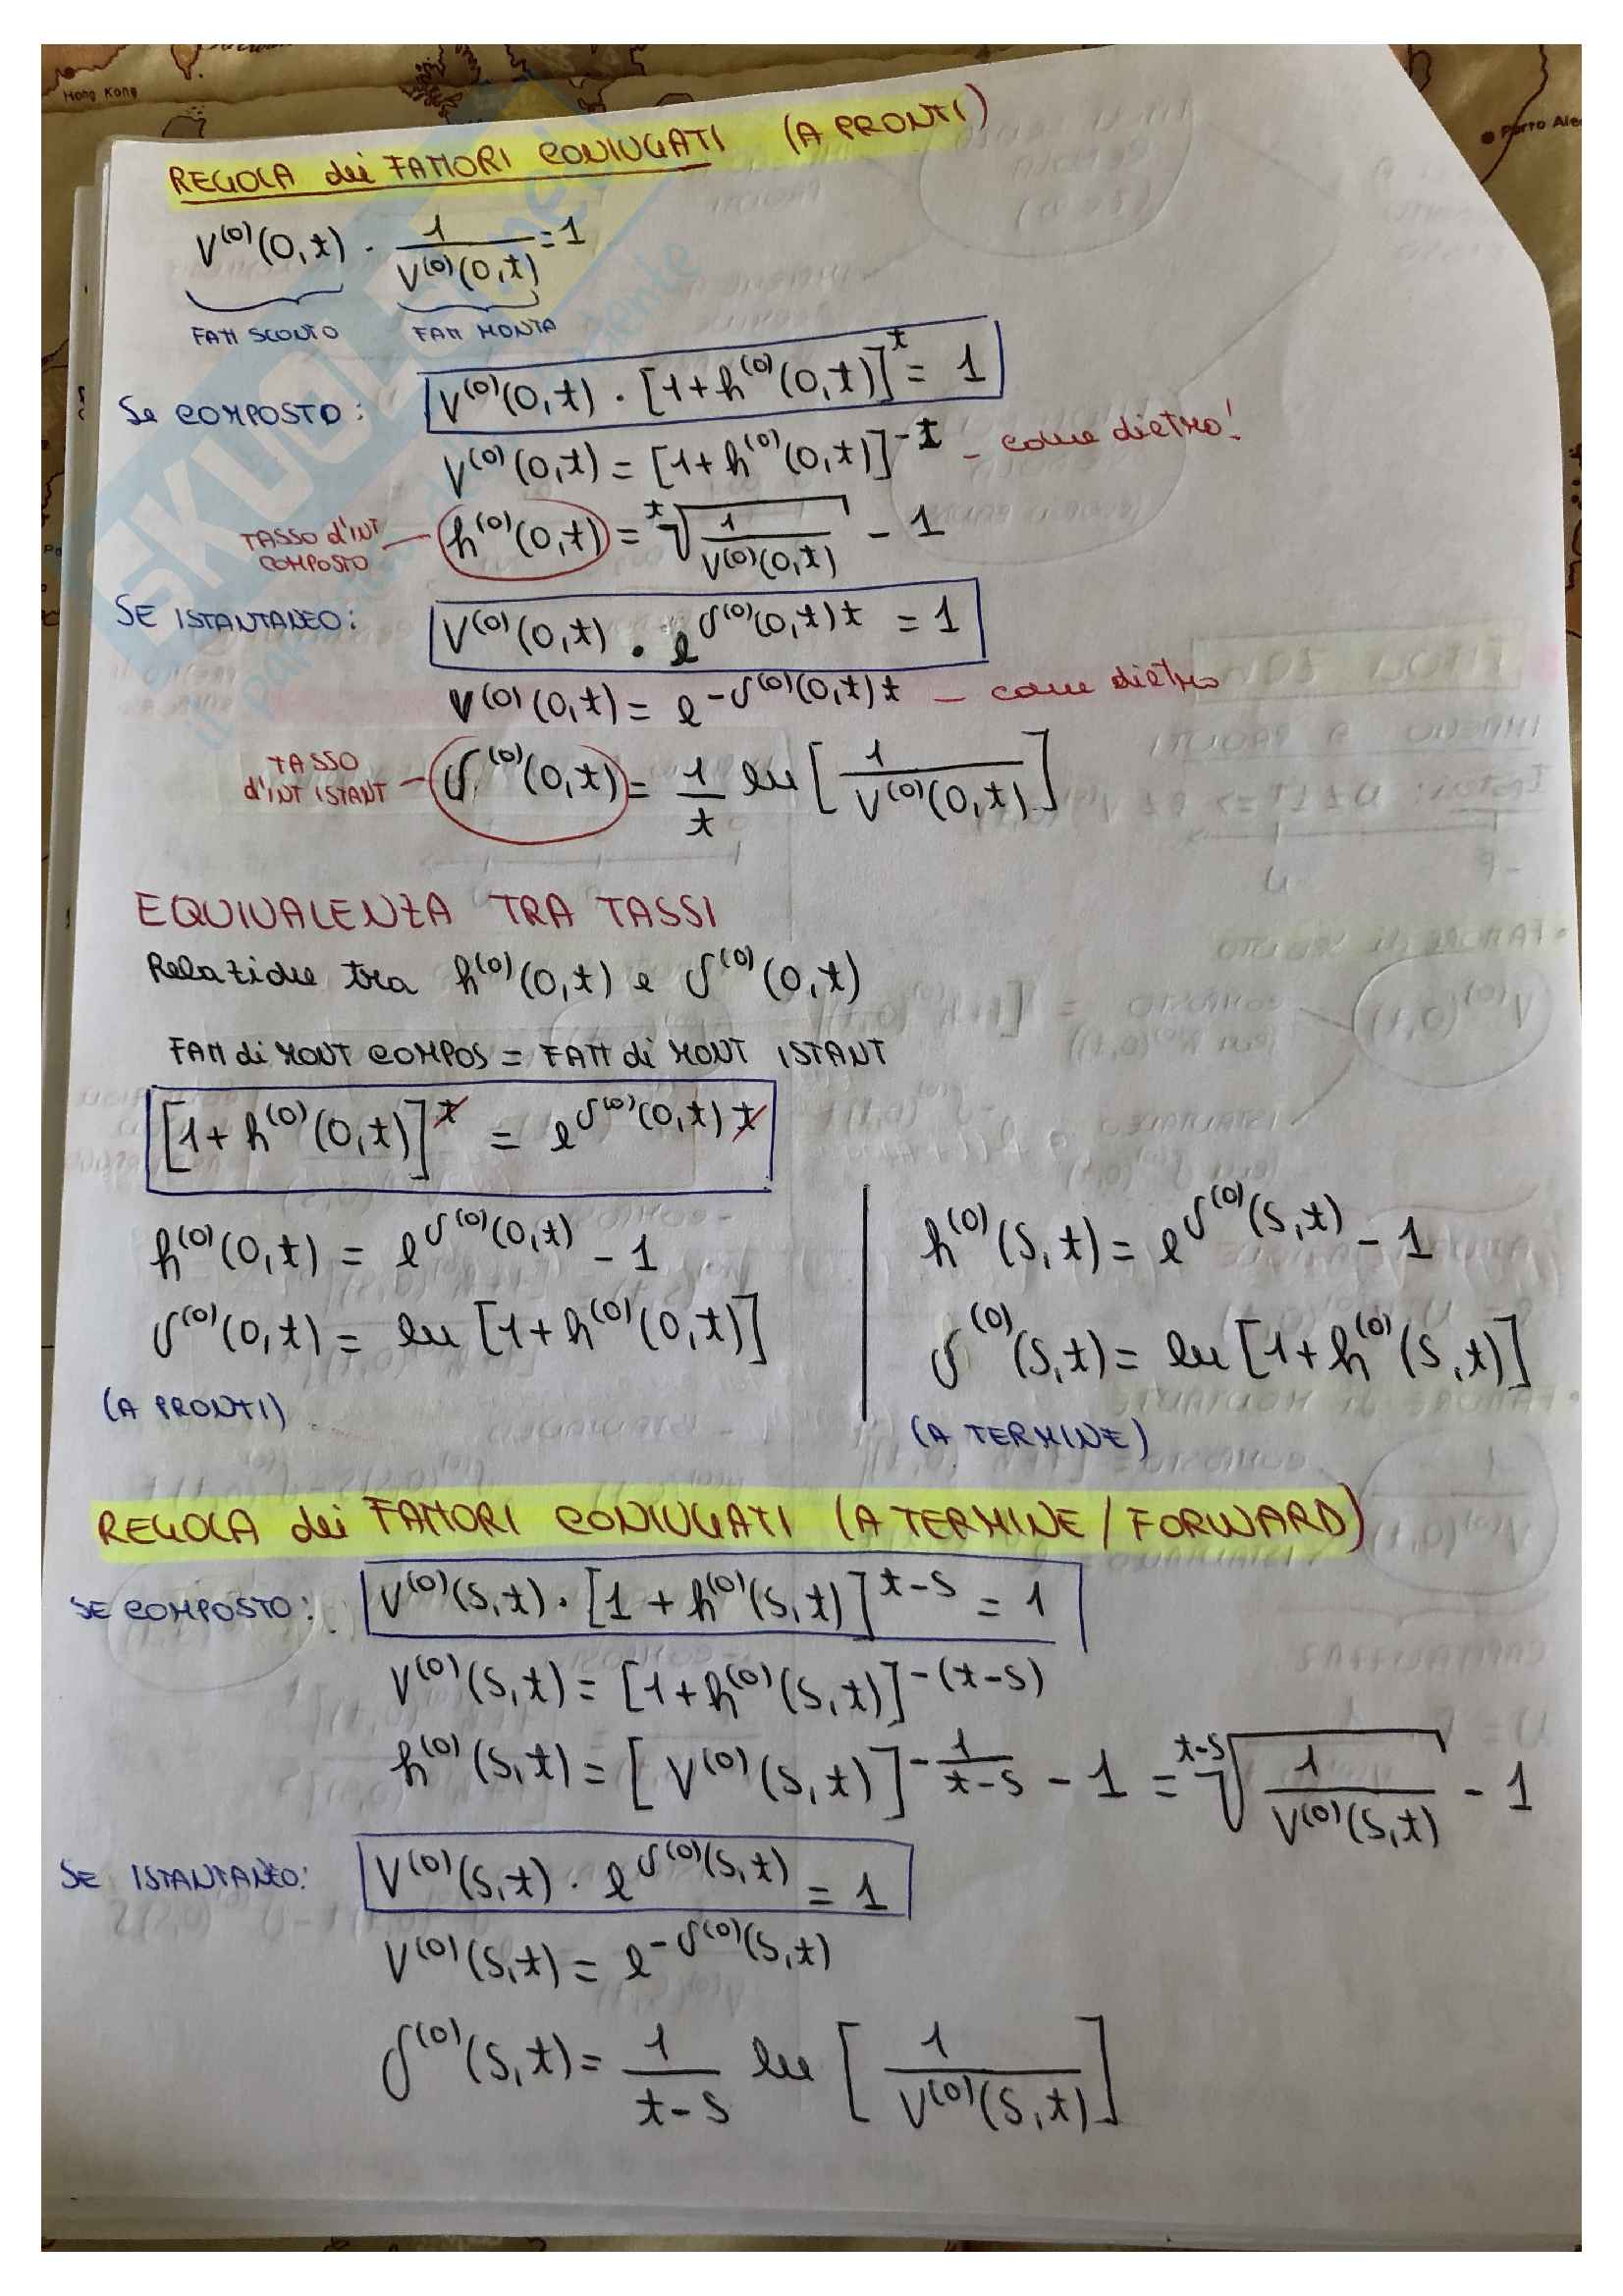 Hong Kong
Porto Ale
REGOLA dei FATTORI CONIUGATI (A PRONTI)
V⁽⁰⁾(0,t) · 1/V⁽⁰⁾(0,t) = 1
FATT SCONTO FATT MONTA
Se COMPOSTO: V⁽⁰⁾(0,t) · [1+h⁽⁰⁾(0,t)]^t = 1
V⁽⁰⁾(0,t) = [1+h⁽⁰⁾(0,t)]^-t - come dietro!
TASSO d'INT COMPOSTO - h⁽⁰⁾(0,t) = ᵗ√(1/V⁽⁰⁾(0,t)) - 1
SE ISTANTANEO: V⁽⁰⁾(0,t) · e^(δ⁽⁰⁾(0,t)t) = 1
V⁽⁰⁾(0,t) = e^(-δ⁽⁰⁾(0,t)t) - come dietro
TASSO d'INT ISTANT - δ⁽⁰⁾(0,t) = 1/t ln [1/V⁽⁰⁾(0,t)]
EQUIVALENZA TRA TASSI
Relazione tra h⁽⁰⁾(0,t) e δ⁽⁰⁾(0,t)
FATT di MONT COMPOS = FATT di MONT ISTANT
[1+h⁽⁰⁾(0,t)]^t = e^(δ⁽⁰⁾(0,t)t)
h⁽⁰⁾(0,t) = e^(δ⁽⁰⁾(0,t)) - 1
δ⁽⁰⁾(0,t) = ln [1+h⁽⁰⁾(0,t)]
(A PRONTI)
h⁽⁰⁾(s,t) = e^(δ⁽⁰⁾(s,t)) - 1
δ⁽⁰⁾(s,t) = ln [1+h⁽⁰⁾(s,t)]
(A TERMINE)
REGOLA dei FATTORI CONIUGATI (A TERMINE / FORWARD)
SE COMPOSTO: V⁽⁰⁾(s,t) · [1+h⁽⁰⁾(s,t)]^(t-s) = 1
V⁽⁰⁾(s,t) = [1+h⁽⁰⁾(s,t)]^-(t-s)
h⁽⁰⁾(s,t) = [V⁽⁰⁾(s,t)]^(-1/(t-s)) - 1 = ᵗ⁻ˢ√(1/V⁽⁰⁾(s,t)) - 1
SE ISTANTANEO: V⁽⁰⁾(s,t) · e^(δ⁽⁰⁾(s,t)) = 1
V⁽⁰⁾(s,t) = e^(-δ⁽⁰⁾(s,t))
δ⁽⁰⁾(s,t) = 1/(t-s) ln [1/V⁽⁰⁾(s,t)]